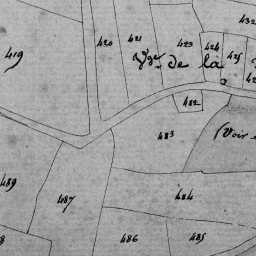 432
420
421
423
424
425
419
Vge de la
482
483
Voir
489
487
484
486
485